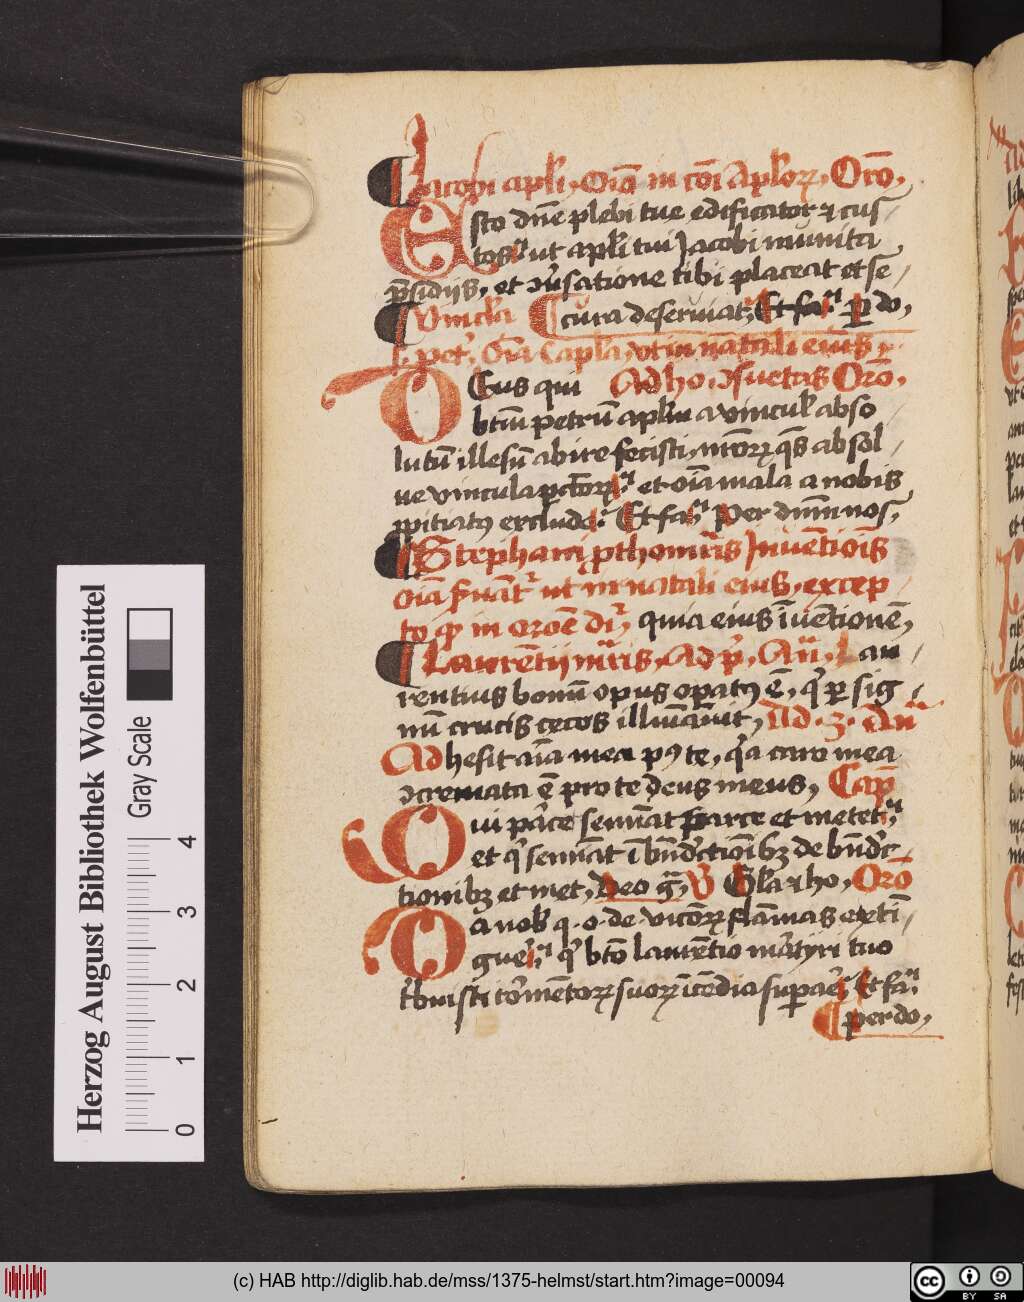 Jacobi apl̄i, Oīa in cōi Apl̄oꝝ, Orō,
Esto dn̄e plebi tue edificator ⁊ cus-
tos, ut apl̄i tui Jacobi munita
p̄sidiis, et ꝯu̾satione tibi placeat et se-
Cura deseruiat, Et fa. per do,
Vincl̄a
s. pet', Oīa capl̄a, ut in natali eius ⁊
Ad ho. ꝯsuetas Orō,
Deus qui
btm̄ petrū apl̄m a vincul' abso
lutū illesū abire fecisti, nr̄oꝝ qs̄ absol-
ue vincula pctōꝝ, et oīa mala a nobis
ꝓpitiatꝰ exclude. Et fa. Per dn̄m nos,
Stephani ꝓthomr̄is Inuētiois
oīa ẜuāt' ut in natali eius, excep
to ꝙ in oroē di', quia eius īuētionē,
Laurētij mr̄is, Ad p', An̄, Lau-
rentius bonū opus opatꝰ ē, q' per sig-
nū crucis cecos illuīauit, Ad .3. An̄
Adhesit aīa mea pꝰ te, q'a caro mea
ꝯcremata ē pro te deus meus, Cap̄
Qui p'ce semīat parce et metet,
et q' semīat ī bn̄dictiōibꝫ de bn̄dic-
tionibꝫ et met, Deo gr̄a, V̄ Gl'a ⁊ ho, Orō
Da nob' q. o. de vicioꝝ flāmas extī-
gue', q' btō laurētio mr̄tyri tuo
t'buisti tormētoꝝ suoꝝ īcēdia supar̄e, Et fa.
per do,
Herzog August Bibliothek Wolfenbüttel
Gray Scale
0 1 2 3 4
(c) HAB http://diglib.hab.de/mss/1375-helmst/start.htm?image=00094
cc BY SA